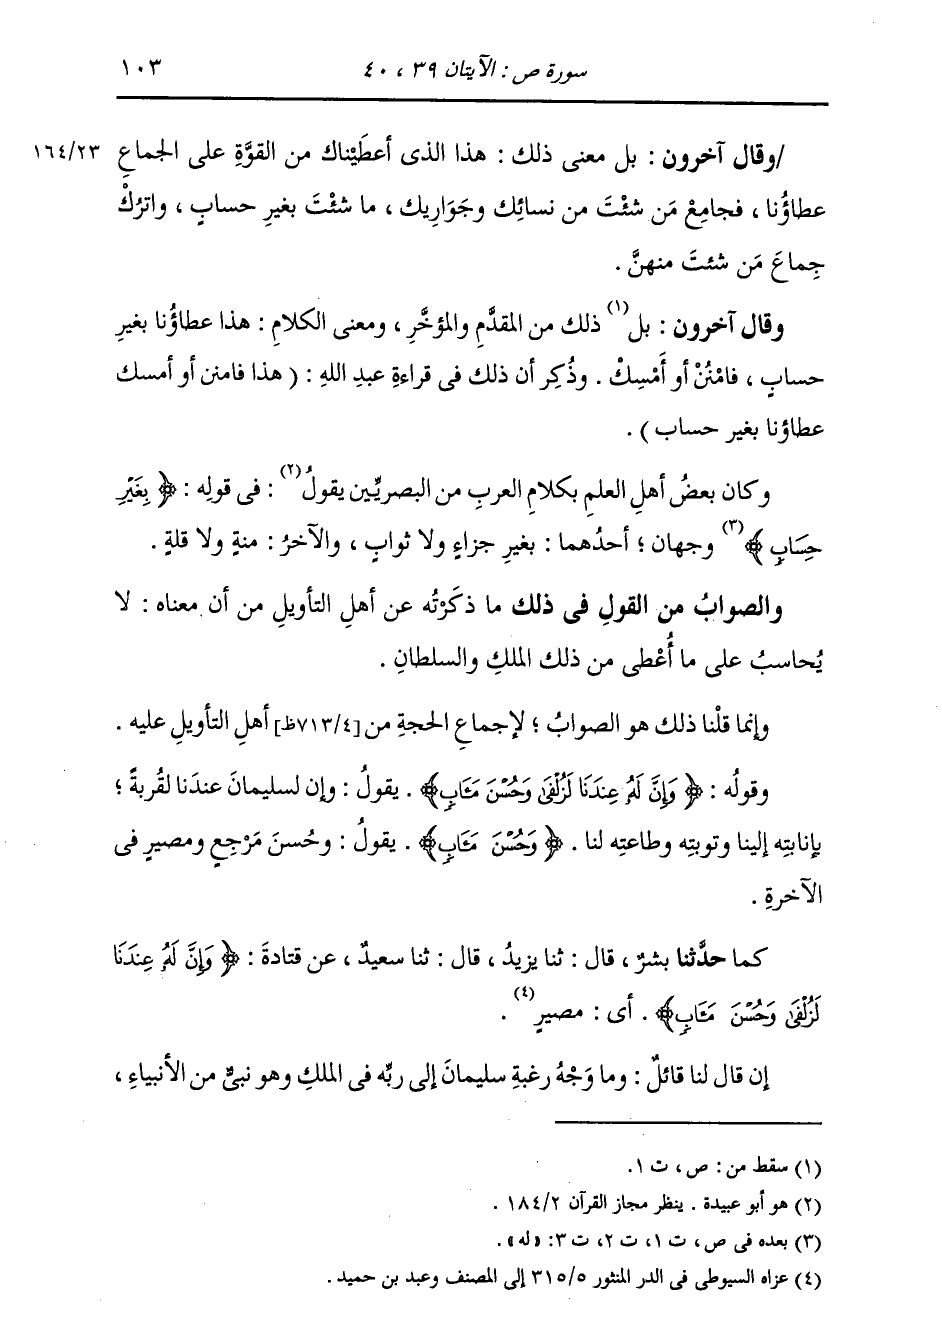 سورة ص : الآيتان ٣٩ ، ٤٠
١٠٣
/وقال آخرون : بل معنى ذلك : هذا الذى أعطَيْناك من القوَّةِ على الجماعِ ١٦٤/٢٣
عطاؤُنا ، فجامِعْ مَن شئْتَ من نسائِك وجَوَارِيك ، ما شئْتَ بغيرِ حسابٍ ، واترُكْ
جِماعَ مَن شئتَ منهنَّ .
وقال آخرون : بل(١) ذلك من المقدَّمِ والمؤخَّرِ ، ومعنى الكلامِ : هذا عطاؤُنا بغيرِ
حسابٍ ، فامْنُنْ أو أَمْسِكْ . وذُكِر أن ذلك فى قراءةِ عبدِ اللهِ : ( هذا فامنن أو أمسك
عطاؤنا بغير حساب ) .
وكان بعضُ أهلِ العلمِ بكلامِ العربِ من البصريِّين يقولُ(٢) : فى قولِه : ﴿ بِغَيْرِ
حِسَابٍ ﴾(٣) وجهان ؛ أحدُهما : بغيرِ جزاءٍ ولا ثوابٍ ، والآخرُ : منةٍ ولا قلةٍ .
والصوابُ من القولِ فى ذلك ما ذكَرْتُه عن أهلِ التأويلِ من أن معناه : لا
يُحاسبُ على ما أُعْطى من ذلك الملكِ والسلطانِ .
وإنما قلْنا ذلك هو الصوابُ ؛ لإجماعِ الحجةِ من [٧١٣/٤ظ] أهلِ التأويلِ عليه .
وقولُه : ﴿ وَإِنَّ لَهُ عِندَنَا لَزُلْفَى وَحُسْنَ مَـَٔابٍ ﴾ . يقولُ : وإن لسليمانَ عندَنا لقُربةً ؛
بإنابتِه إلينا وتوبتِه وطاعتِه لنا . ﴿ وَحُسْنَ مَـَٔابٍ ﴾ . يقولُ : وحُسنَ مَرْجِعٍ ومصيرٍ فى
الآخرةِ .
كما حدَّثنا بشرٌ ، قال : ثنا يزيدُ ، قال : ثنا سعيدٌ ، عن قتادةَ : ﴿ وَإِنَّ لَهُ عِندَنَا
لَزُلْفَى وَحُسْنَ مَـَٔابٍ ﴾ . أى : مصيرٍ(٤) .
إن قال لنا قائلٌ : وما وَجْهُ رغبةِ سليمانَ إلى ربِّه فى الملكِ وهو نبىٌّ من الأنبياءِ ،
(١) سقط من : ص ، ت ١.
(٢) هو أبو عبيدة . ينظر مجاز القرآن ١٨٤/٢ .
(٣) بعده فى ص ، ت ١، ت ٢، ت ٣: «له» .
(٤) عزاه السيوطى فى الدر المنثور ٣١٥/٥ إلى المصنف وعبد بن حميد .